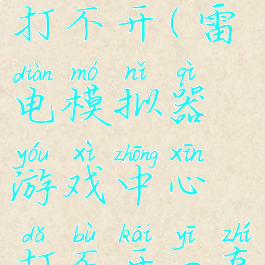 打不开(雷
diàn mó nǐ qì
电模拟器
yóu xì zhōng xīn
游戏中心
dǎ bù kāi yī zhí
打不开一直